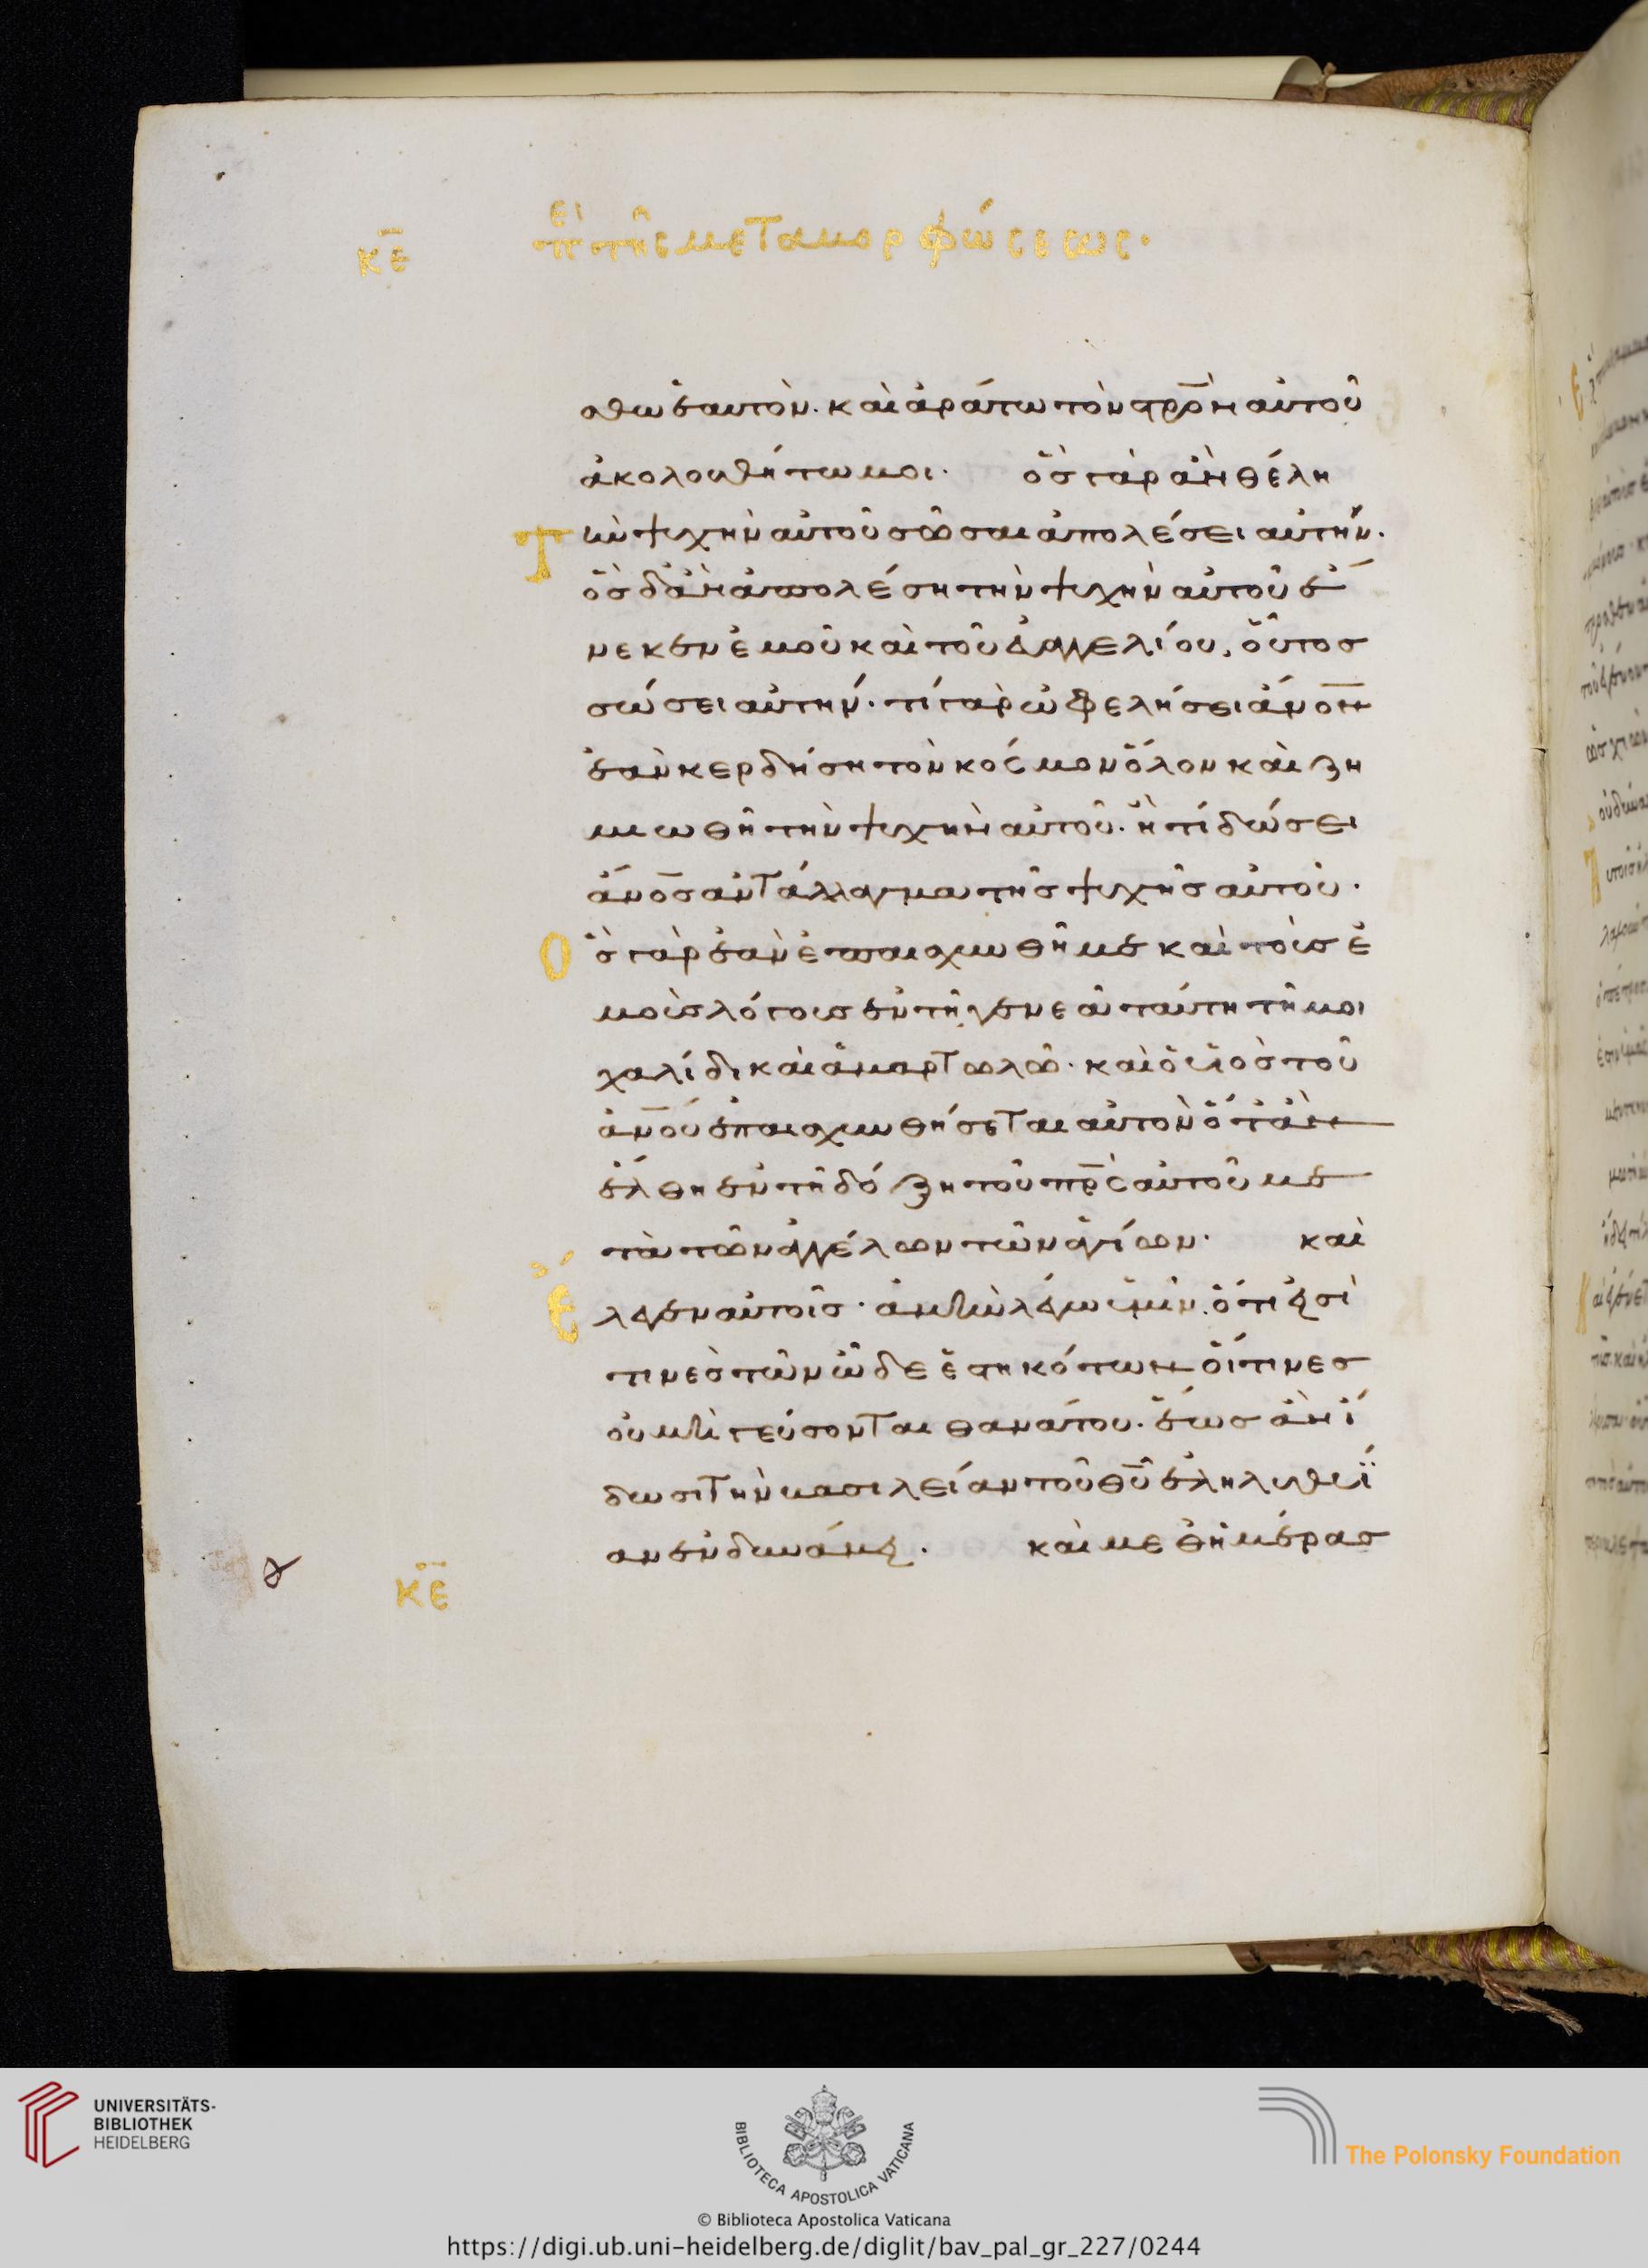 κε πεὶ τῆς μεταμορφώσεως·
σθω ἑαυτὸν. καὶ ἀράτω τὸν στρον αὐτοῦ
ἀκολουθήτω μοι. ὃσ γὰρ ἂν θέλη
Τὴν ψυχὴν αὐτοῦ σῶσαι ἀπολέσει αὐτήν.
ὃσ δἂν ἀπολέση τὴν ψυχὴν αὐτοῦ ἕ
νεκεν ἐμοῦ καὶ τοῦ εὐαγγελίου, οὗτοσ
σώσει αὐτήν. τί γὰρ ὠφελήσει ἄνον
ἐὰν κερδήση τὸν κόσμον ὅλον καὶ ζη
μιωθῆ τὴν ψυχὴν αὐτοῦ. ἢ τί δώσει
ἄνοσ ἀντάλλαγμα τῆσ ψυχῆσ αὐτοῦ.
Ὃσ γὰρ ἐὰν ἐπαισχυνθῆ με καὶ τοὺσ ἐ
μοὺσ λόγουσ ἐν τῆ γενεᾶ ταύτη τῆ μοι
χαλίδι καὶ ἁμαρτωλῶ. καὶ ὁ υἱὸσ τοῦ
ἀνου ἐπαισχυνθήσεται αὐτὸν ὅταν
ἔλθη ἐν τῆ δόξη τοῦ πρσ αὐτοῦ με
τὰ τῶν ἀγγέλων τῶν ἁγίων. καὶ
Ἔλεγεν αὐτοῖσ. ἀμὴν λέγω ὑμῖν. ὅτι εἰσὶ
τινεσ τῶν ὧδε ἑστηκότων οἵτινεσ
οὐ μὴ γεύσονται θανάτου. ἕωσ ἂν ἴ
δωσι τὴν βασιλείαν τοῦ θυ ἐληλυθυῖ
αν ἐν δυνάμει. καὶ μεθ ἡμέρασ
κε
UNIVERSITÄTS-
BIBLIOTHEK
HEIDELBERG
BIBLIOTECA APOSTOLICA VATICANA
The Polonsky Foundation
© Biblioteca Apostolica Vaticana
https://digi.ub.uni-heidelberg.de/diglit/bav_pal_gr_227/0244